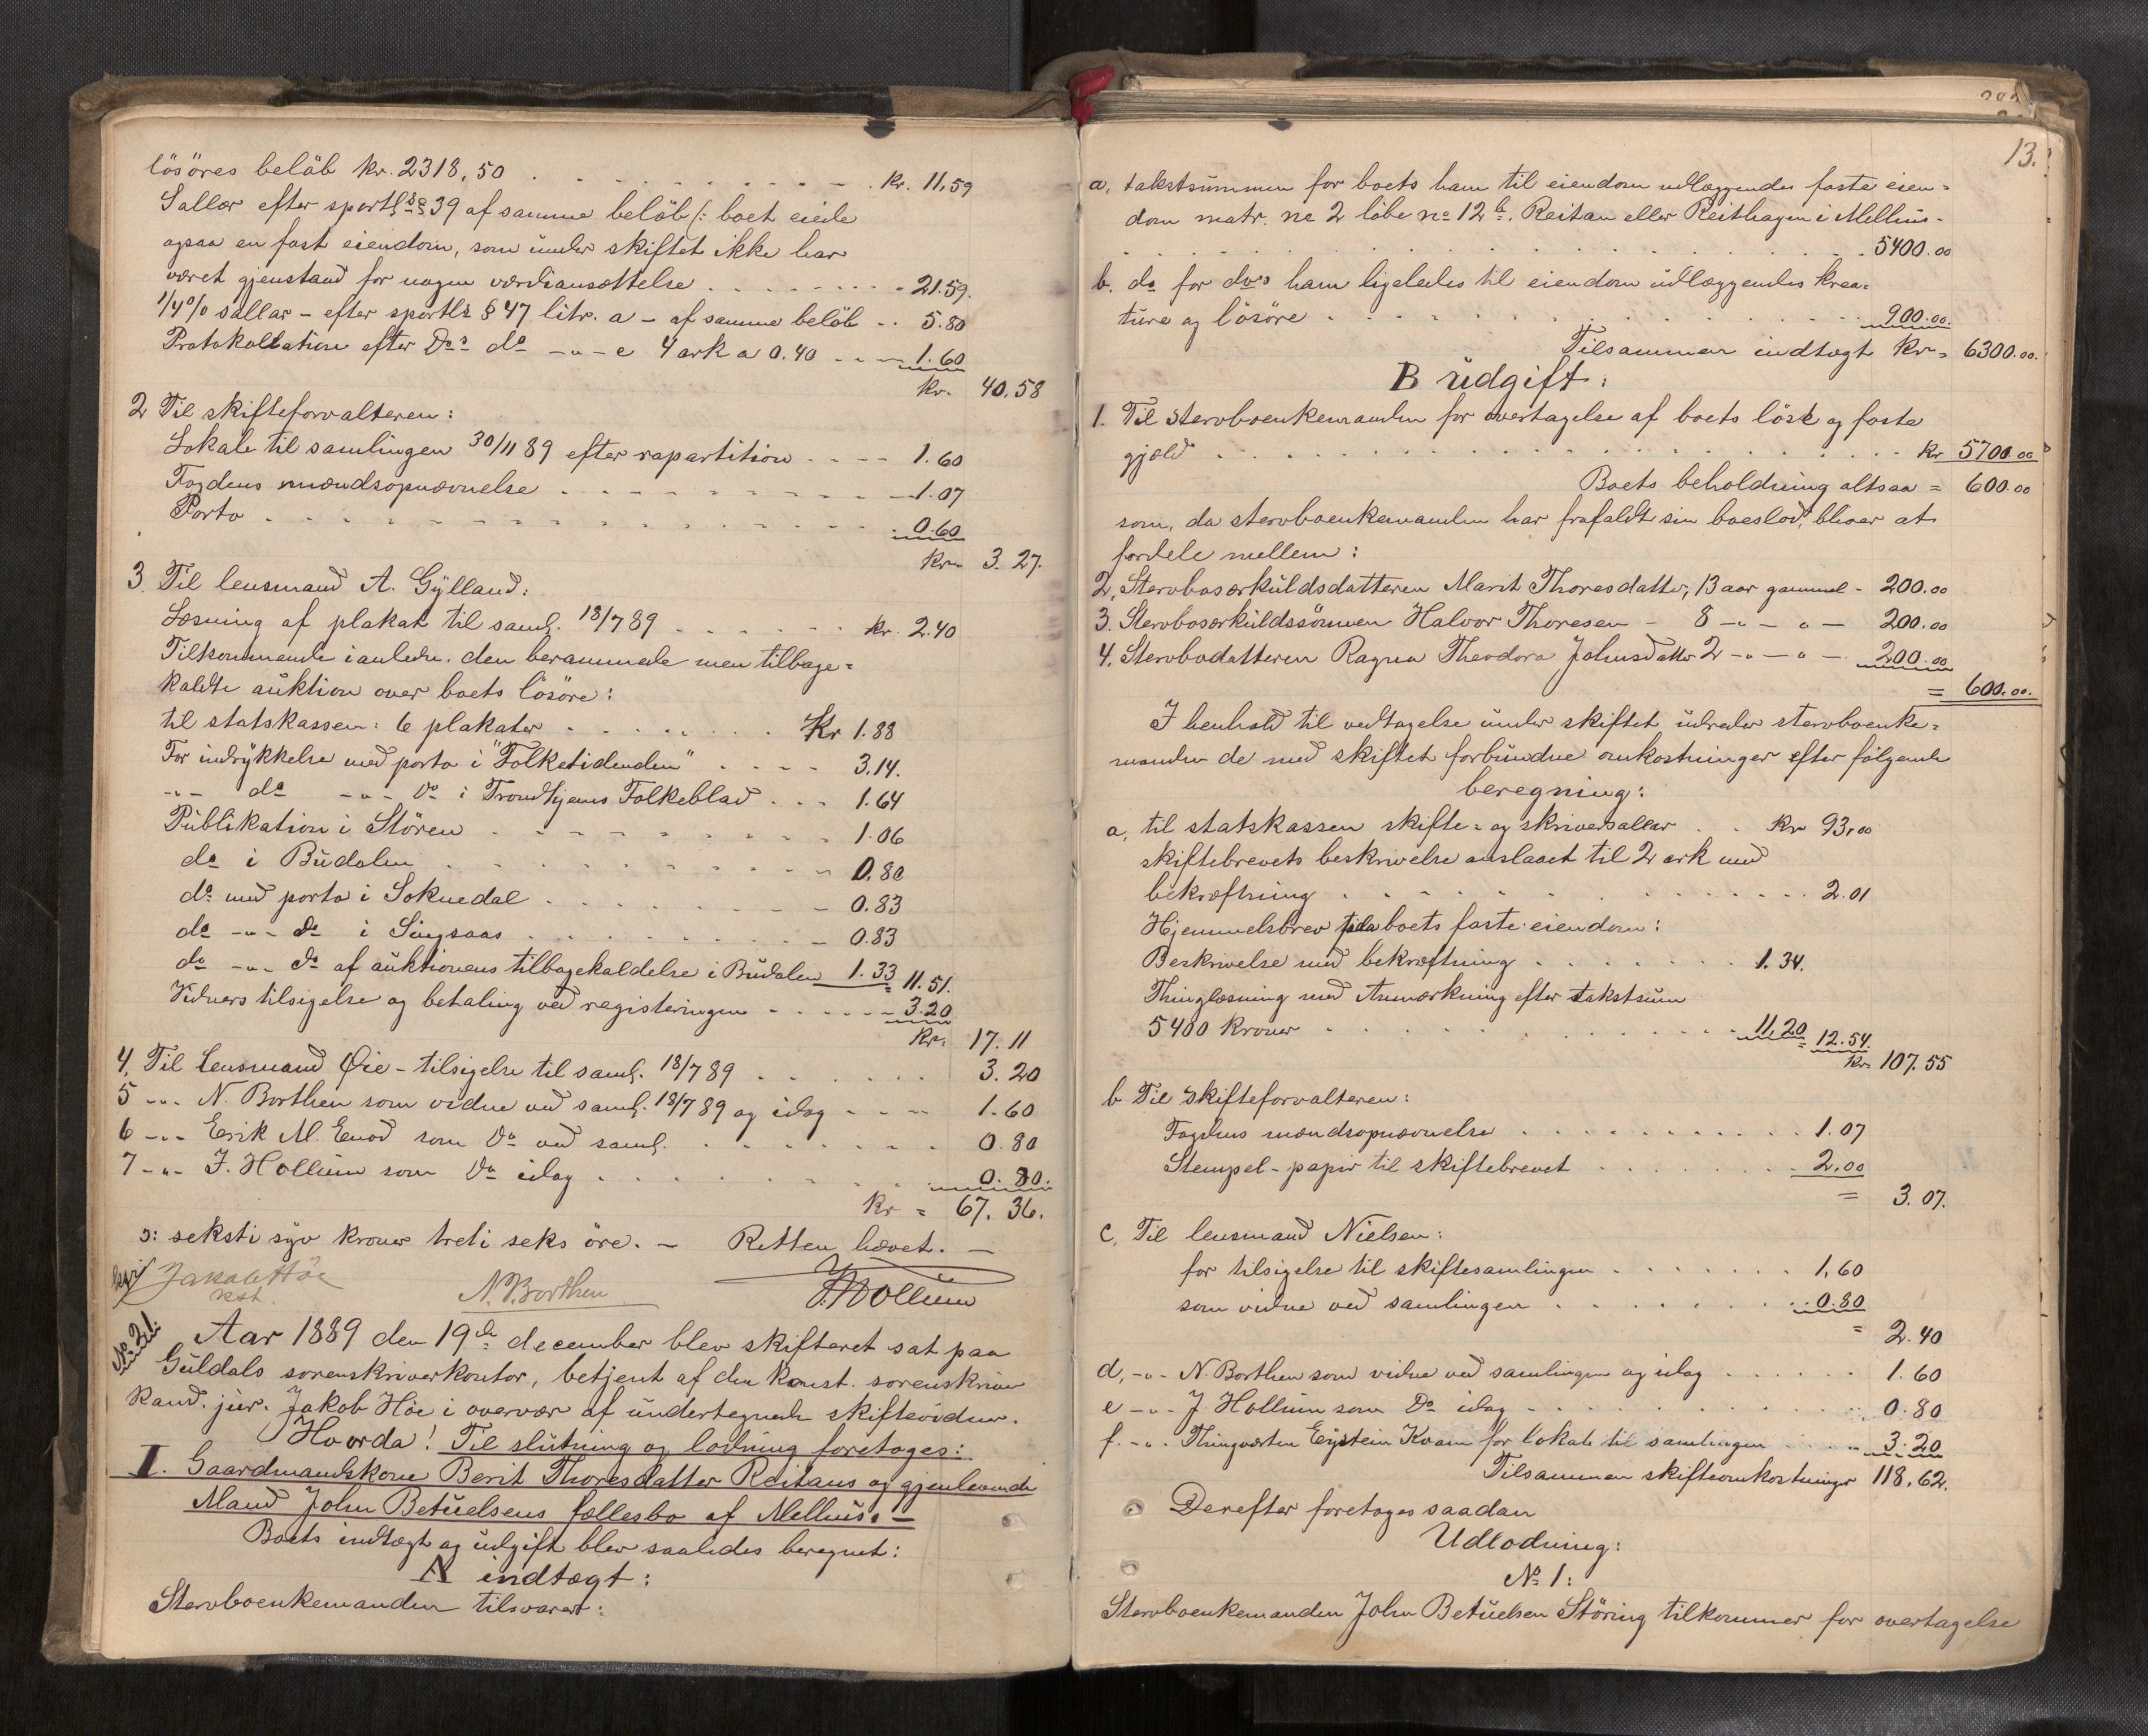 lösöres belöb kr. 2318,50 . . . . . . . . . kr. 11,59
Sallær efter sportls § 39 af samme belöb /: boet eiede
ogsaa en fast eiendom, som under skiftet ikke har
været gjenstand for nogen værdiansættelse . . . . . . . 21.59.
1/4 % sallær - efter sportls § 47 litr. a - af samme belöb . . 5.80
Protokollation efter Do s do - " - e 4 ark a 0.40 . . . 1.60
kr. 40.58
2 Til skifteforvalteren:
Lokale til samlingen 30/11 89 efter rapartition . . . . 1.60
Fogdens mændsopnævnelse . . . . . . . . . . 1.07
Porto . . . . . . . . . . . . . . . 0.60
Kr. 3.27.
3. Til lensmand A. Gylland:
Læsning af plakat til saml. 18/7 89 . . . . . . kr. 2.40
Tilkommende i anledn. den berammede men tilbage=
kaldte auktion over boets lösöre:
til statskassen: 6 plakater . . . . . . . . Kr 1.88
For indrykkelse med porto i "Folketidenden" . . . . 3.14.
- " - do - " - Do i Trondhjems Folkeblad . . . 1.64
Publikation i Stören . . . . . . . . . . 1.06
do i Budalen . . . . . . . . . . . 0.80
do med porto i Soknedal . . . . . . . . . 0.83
do - " - Do i Singsaas . . . . . . . . . 0.83
do - " - Do af auktionens tilbagekaldelse i Budalen 1.33 = 11.51.
Vidners tilsigelse og betaling ved registeringen . . . . . 3.20
Kr. 17.11
4, Til Lensmand Øie - tilsigelse til saml. 18/7 89 . . . . . . 3.20
5 - " - N. Borthen som vidne ved saml. 18/7 89 og idag . . . . 1.60
6 - " - Erik M. Enod som Do ved saml. . . . . . . . . 0.80
7 - " - J. Hollum som Do idag . . . . . . . . . 0.80.
Kr = 67.36.
ɔ: seksti syv kroner treti seks öre. - Retten hævet. -
Jakob Höe
kst.
N. Borthen
J. Hollum
No 21.
Aar 1889 den 19de december blev skifteret sat paa
Guldals sorenskriverkontor, betjent af den konst. sorenskriver
kand. jur. Jakob Höe i overvær af undertegnede skiftevidner.
Hvorda! Til slutning og lodning foretages:
I. Gaardmandskone Berit Thoresdatter Reitans og gjenlevende
Mand John Betuelsens fællesbo af Melhus. -
Boets indtægt og udgift blev saaledes beregnet:
A indtægt:
Stervboenkemanden tilsvarer:
13.
a, takstsummen for boets ham til eiendom udlæggendes faste eien=
dom matr. no 2 löbe no 12 b. Reitan eller Reithagen i Melhus -
. . . . . . . . . . . . . . . . . . 5400.00
b. do for do's ham ligeledes til eiendom udlæggendes krea=
ture og lösöre . . . . . . . . . . . . . . 900.00.
Tilsammen indtægt Kr = 6300.00.
B udgift:
1. Til stervboenkemanden for overtagelse af boets löse og faste
gjæld . . . . . . . . . . . . . . . . Kr 5700.00
Boets beholdning altsaa = 600.00
som, da stervboenkemanden har frafaldt sin boeslod, bliver at
fordele mellem:
2, Stervbosærkuldsdatteren Marit Thoresdatter, 13 aar gammel - 200.00
3. Stervbosærkuldssönnen Halvor Thoresen - 8 - " - " - 200.00
4. Stervbodatteren Ragna Theodora Johnsdatter 2 - " - " - 200.00
= 600.00.
I henhold til vedtagelse under skiftet udreder stervboenke=
manden de med skiftet forbundne omkostninger efter fölgende
beregning:
a, til statskassen skifte= og skriversallær . . Kr 93,00
skiftebrevets beskrivelse anslaaet til 2 ark med
bekræftning . . . . . . . . . . . . . 2.01
Hjemmelsbrev paa boets faste eiendom:
Beskrivelse med bekræftning . . . . . . . 1.34.
Thinglæsning med Anmærkning efter takstsum
5400 kroner . . . . . . . . . . . 11.20 = 12.54.
Kr. 107.55
b Til skifteforvalteren:
Fogdens mændsopnævnelse . . . . . . . . . . 1.07
Stempel-papir til skiftebrevet . . . . . . . . 2.00
= 3.07.
c, Til lensmand Nielsen:
for tilsigelse til skiftesamlingen . . . . . . . 1,60
som vidne ved samlingen . . . . . . . . . 0.80
= 2.40
d, - " - N. Borthen som vidne ved samlingen og idag . . . . . . 1.60
e - " - J. Hollum som Do idag . . . . . . . . . . . 0.80
f. - " - Thingværten Eystein Kvam for lokale til samlingen . . . . 3.20
Tilsammen skifteomkostninger 118.62.
Derefter foretoges saadan
Udlodning:
No 1:
Stervboenkemanden John Betuelsen Störing tilkommer for overtagelse